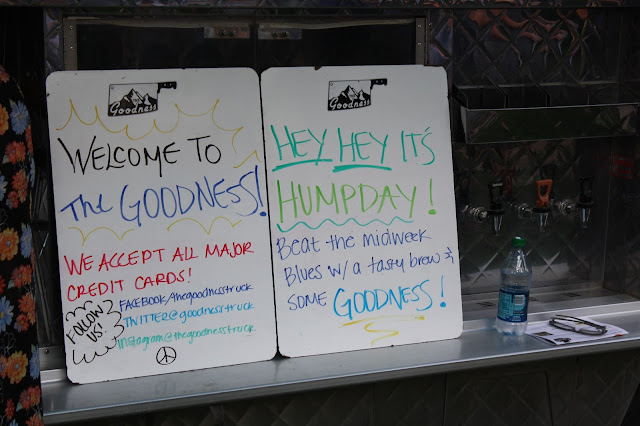 Goodness
WELCOME TO
The GOODNESS!
WE ACCEPT ALL MAJOR
CREDIT CARDS!
FOLLOW
US!
FACEBOOK/thegoodnesstruck
TWITTER@goodnesstruck
instagram@thegoodnesstruck
Goodness
HEY HEY IT'S
HUMPDAY!
Beat the midweek
Blues w/ a tasty brew &
SOME GOODNESS!